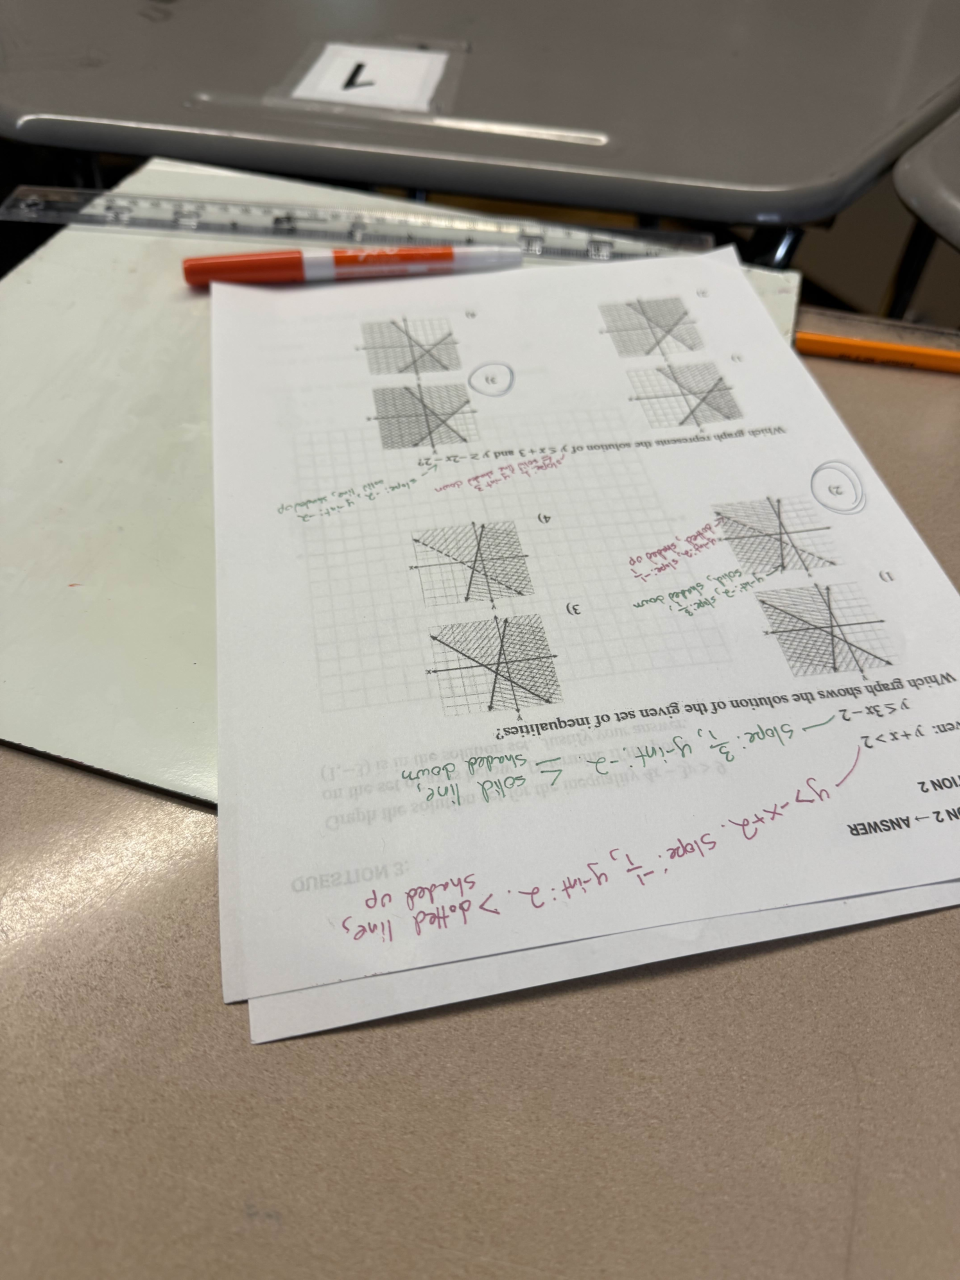 ON 2 → ANSWER
TION 2
ven: y + x > 2
y ≤ 3x − 2
y > -x+2. slope: -1/1, y-int: 2. > dotted line,
shaded up
slope: 3/1, y-int: -2. ≤ solid line,
shaded down
Which graph shows the solution of the given set of inequalities?
1)
3)
y-int: -2, slope: 3/1,
solid, shaded down
y-int: 2, slope: -1/1
dotted, shaded up
2)
4)
slope: -2, y-int: -2
solid line, shaded up
Which graph represents the solution of y ≤ x + 3 and y ≥ −2x − 2?
1)
3)
2)
4)
QUESTION 3:
Graph the solution set for the inequality 4x − 3y > 9
on the set
(1, −3) is in the solution set. Justify your answer.